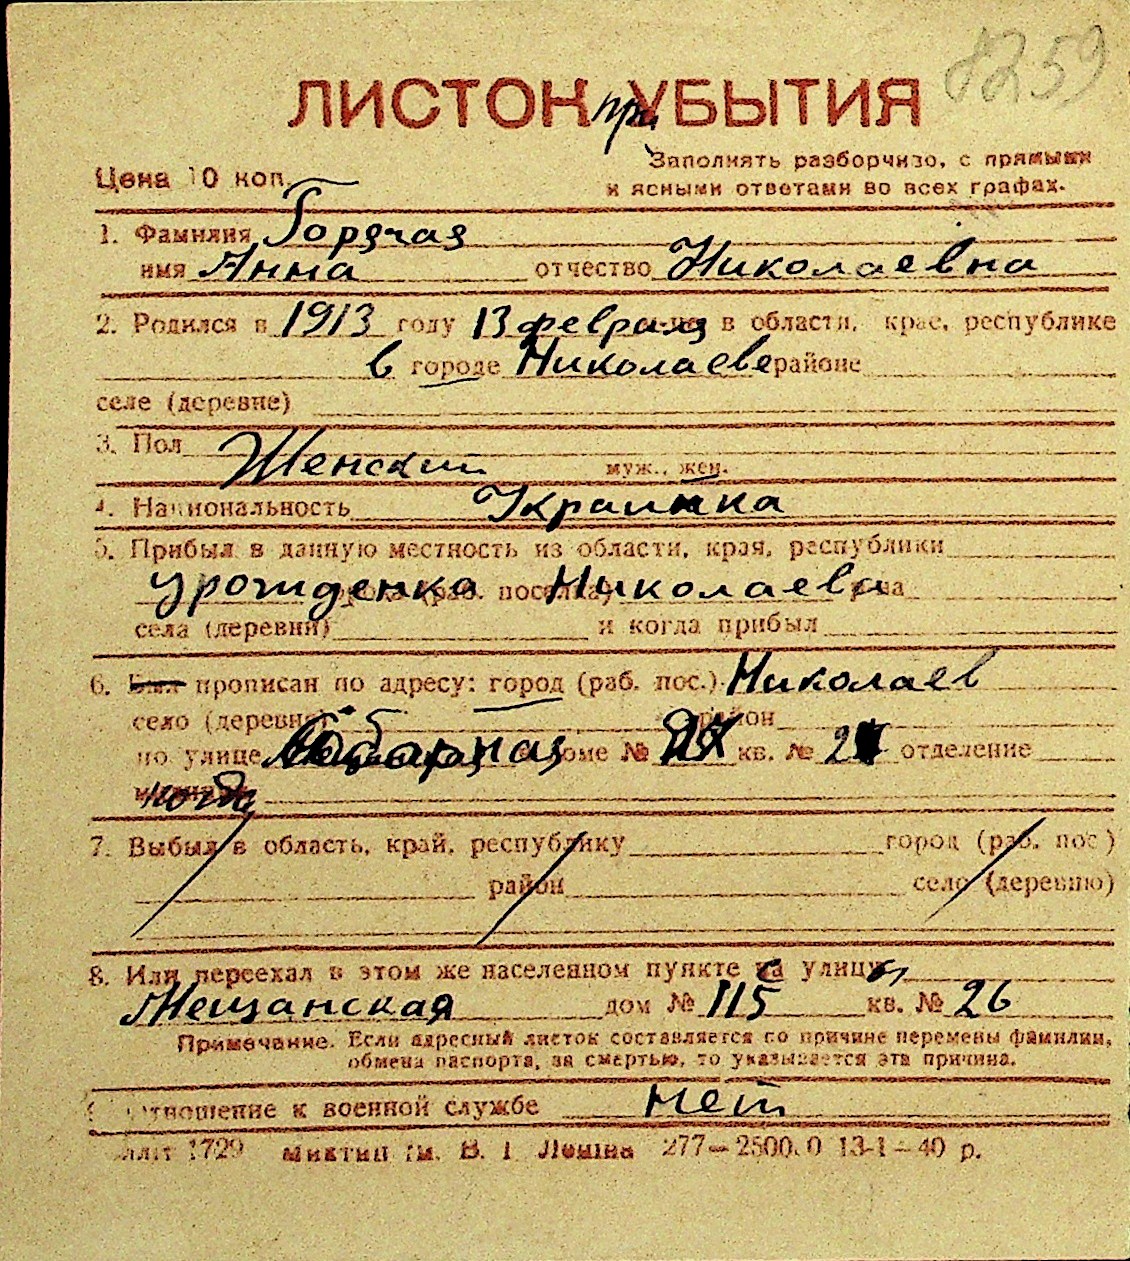 8259
ЛИСТОК при УБЫТИЯ
Цена 10 коп.
Заполнять разборчиво, с прямыми
и ясными ответами во всех графах.
1. Фамилия Горячая
имя Анна отчество Николаевна
2. Родился в 1913 году 13 февраля в области, крае, республике
в городе Николаеве районе
селе (деревне)
3. Пол Женский муж., жен.
4. Национальность Украинка
5. Прибыл в данную местность из области, края, республики
урожденка города (раб. поселка) Николаева района
села (деревни) и когда прибыл
6. Был прописан по адресу: город (раб. пос.) Николаев
село (деревня) район
по улице доме № кв. № отделение
7. Выбыл в область, край, республику город (раб. пос.)
район село (деревню)
8. Или переехал в этом же населенном пункте с улицы
Мещанская дом № 115 кв. № 26
Примечание. Если адресный листок составляется по причине перемены фамилии,
обмена паспорта, за смертью, то указывается эта причина.
Отношение к военной службе Нет
1729 им. В. Ленина 277—2500.0 13-1—40 р.